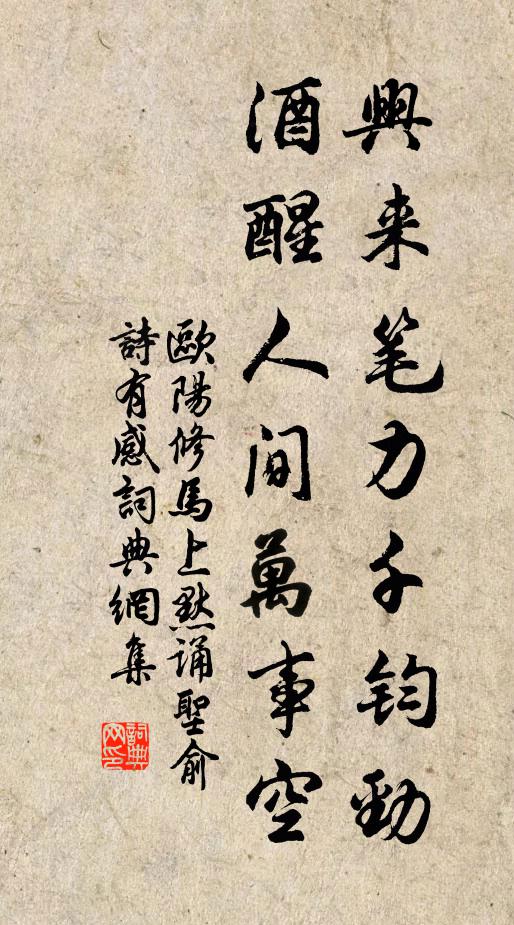 興来笔力千鈞勁
酒醒人间萬事空
歐陽修馬上默誦聖俞
詩有感詞典網集
詞典网印